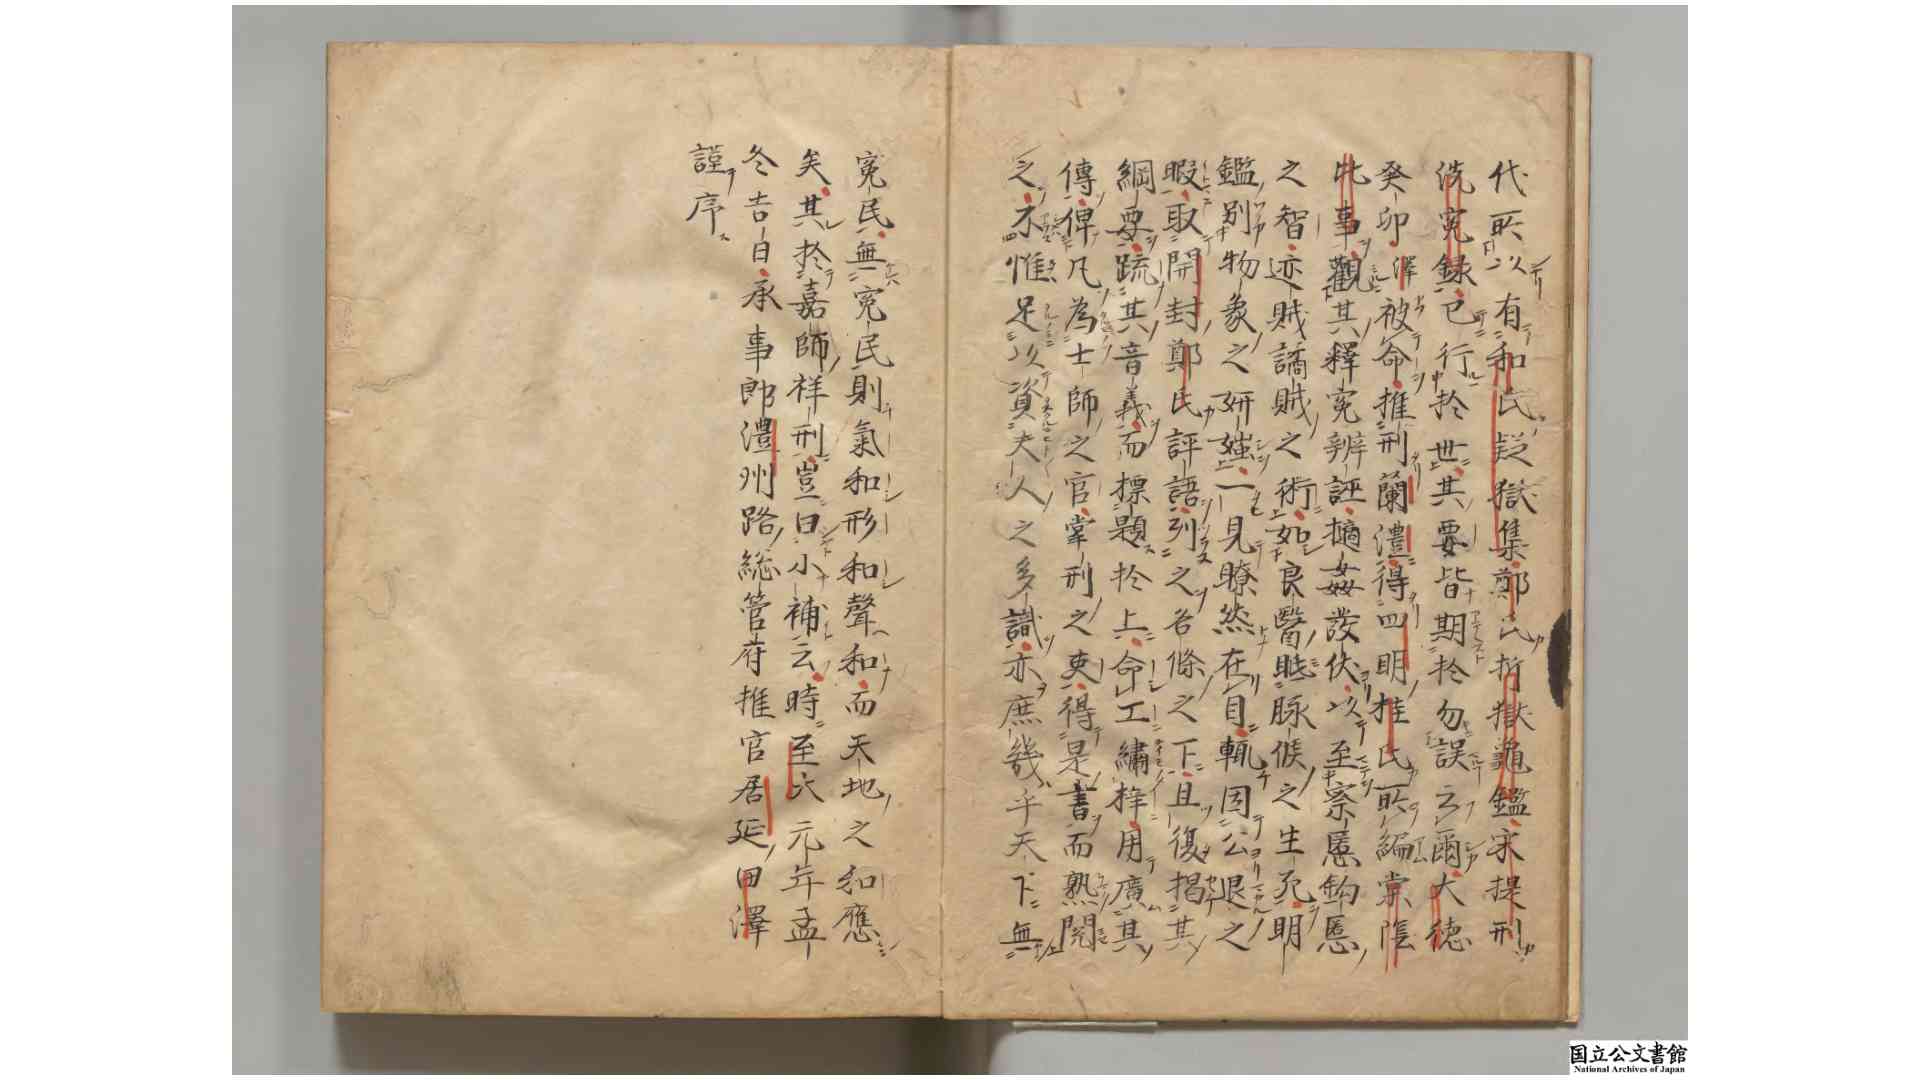 代所以有和氏疑獄集鄭氏折獄龜鑑宋提刑
洗冤録已行於世其要皆期於勿誤云爾大德
癸卯澤被命推刑蘭澧得四明桂氏所編棠陰
比事觀其釋冤辨誣擿姦發伏以至察慝鈎慝
之智迹賊譎賊之術如良醫眡脉候之生死明
鑑別物象之妍媸一見瞭然在目輒因公退之
暇取開封鄭氏評語列之各條之下且復揭其
綱要䟽其音義而摽題於上命工繡梓用廣其
傳俾凡為士師之官掌刑之吏得是書而熟閲
之不惟足以資夫人之多識亦庶幾乎天下無
冤民無冤民則氣和形和聲和而天地之和應
矣其於嘉師祥刑豈曰小補云時至大元年孟
冬吉日承事郎澧州路総管府推官居延田澤
謹序
国立公文書館
National Archives of Japan